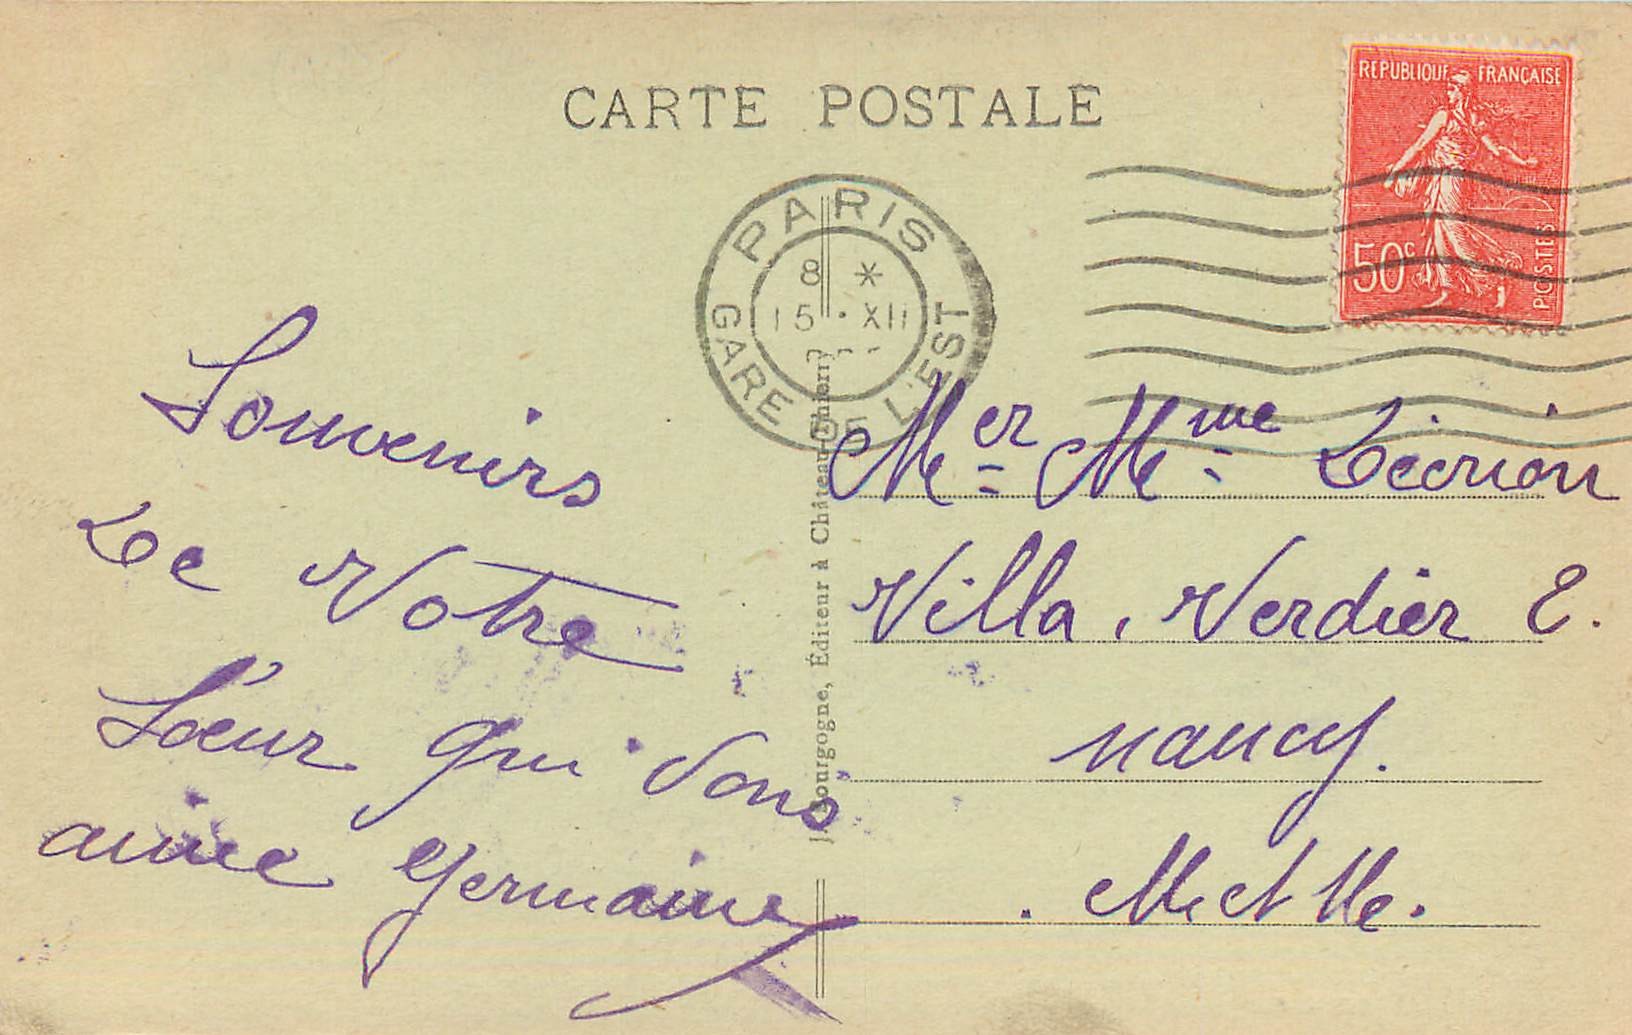 CARTE POSTALE
REPUBLIQUE FRANÇAISE
50c
POSTES
PARIS
8 *
15 · XII
GARE DE L'EST
Souvenirs
De Votre
Sœur qui Vous
aime Germaine
Bourgogne, Éditeur à Château-Thierry
Mer Mme
Villa, Verdier E.
nancy.
M et Me.